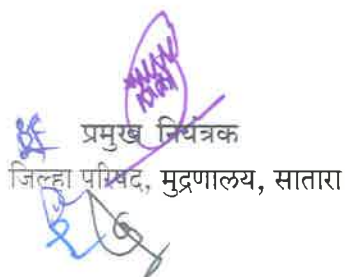 प्रमुख नियंत्रक
जिल्हा परिषद, मुद्रणालय, सातारा